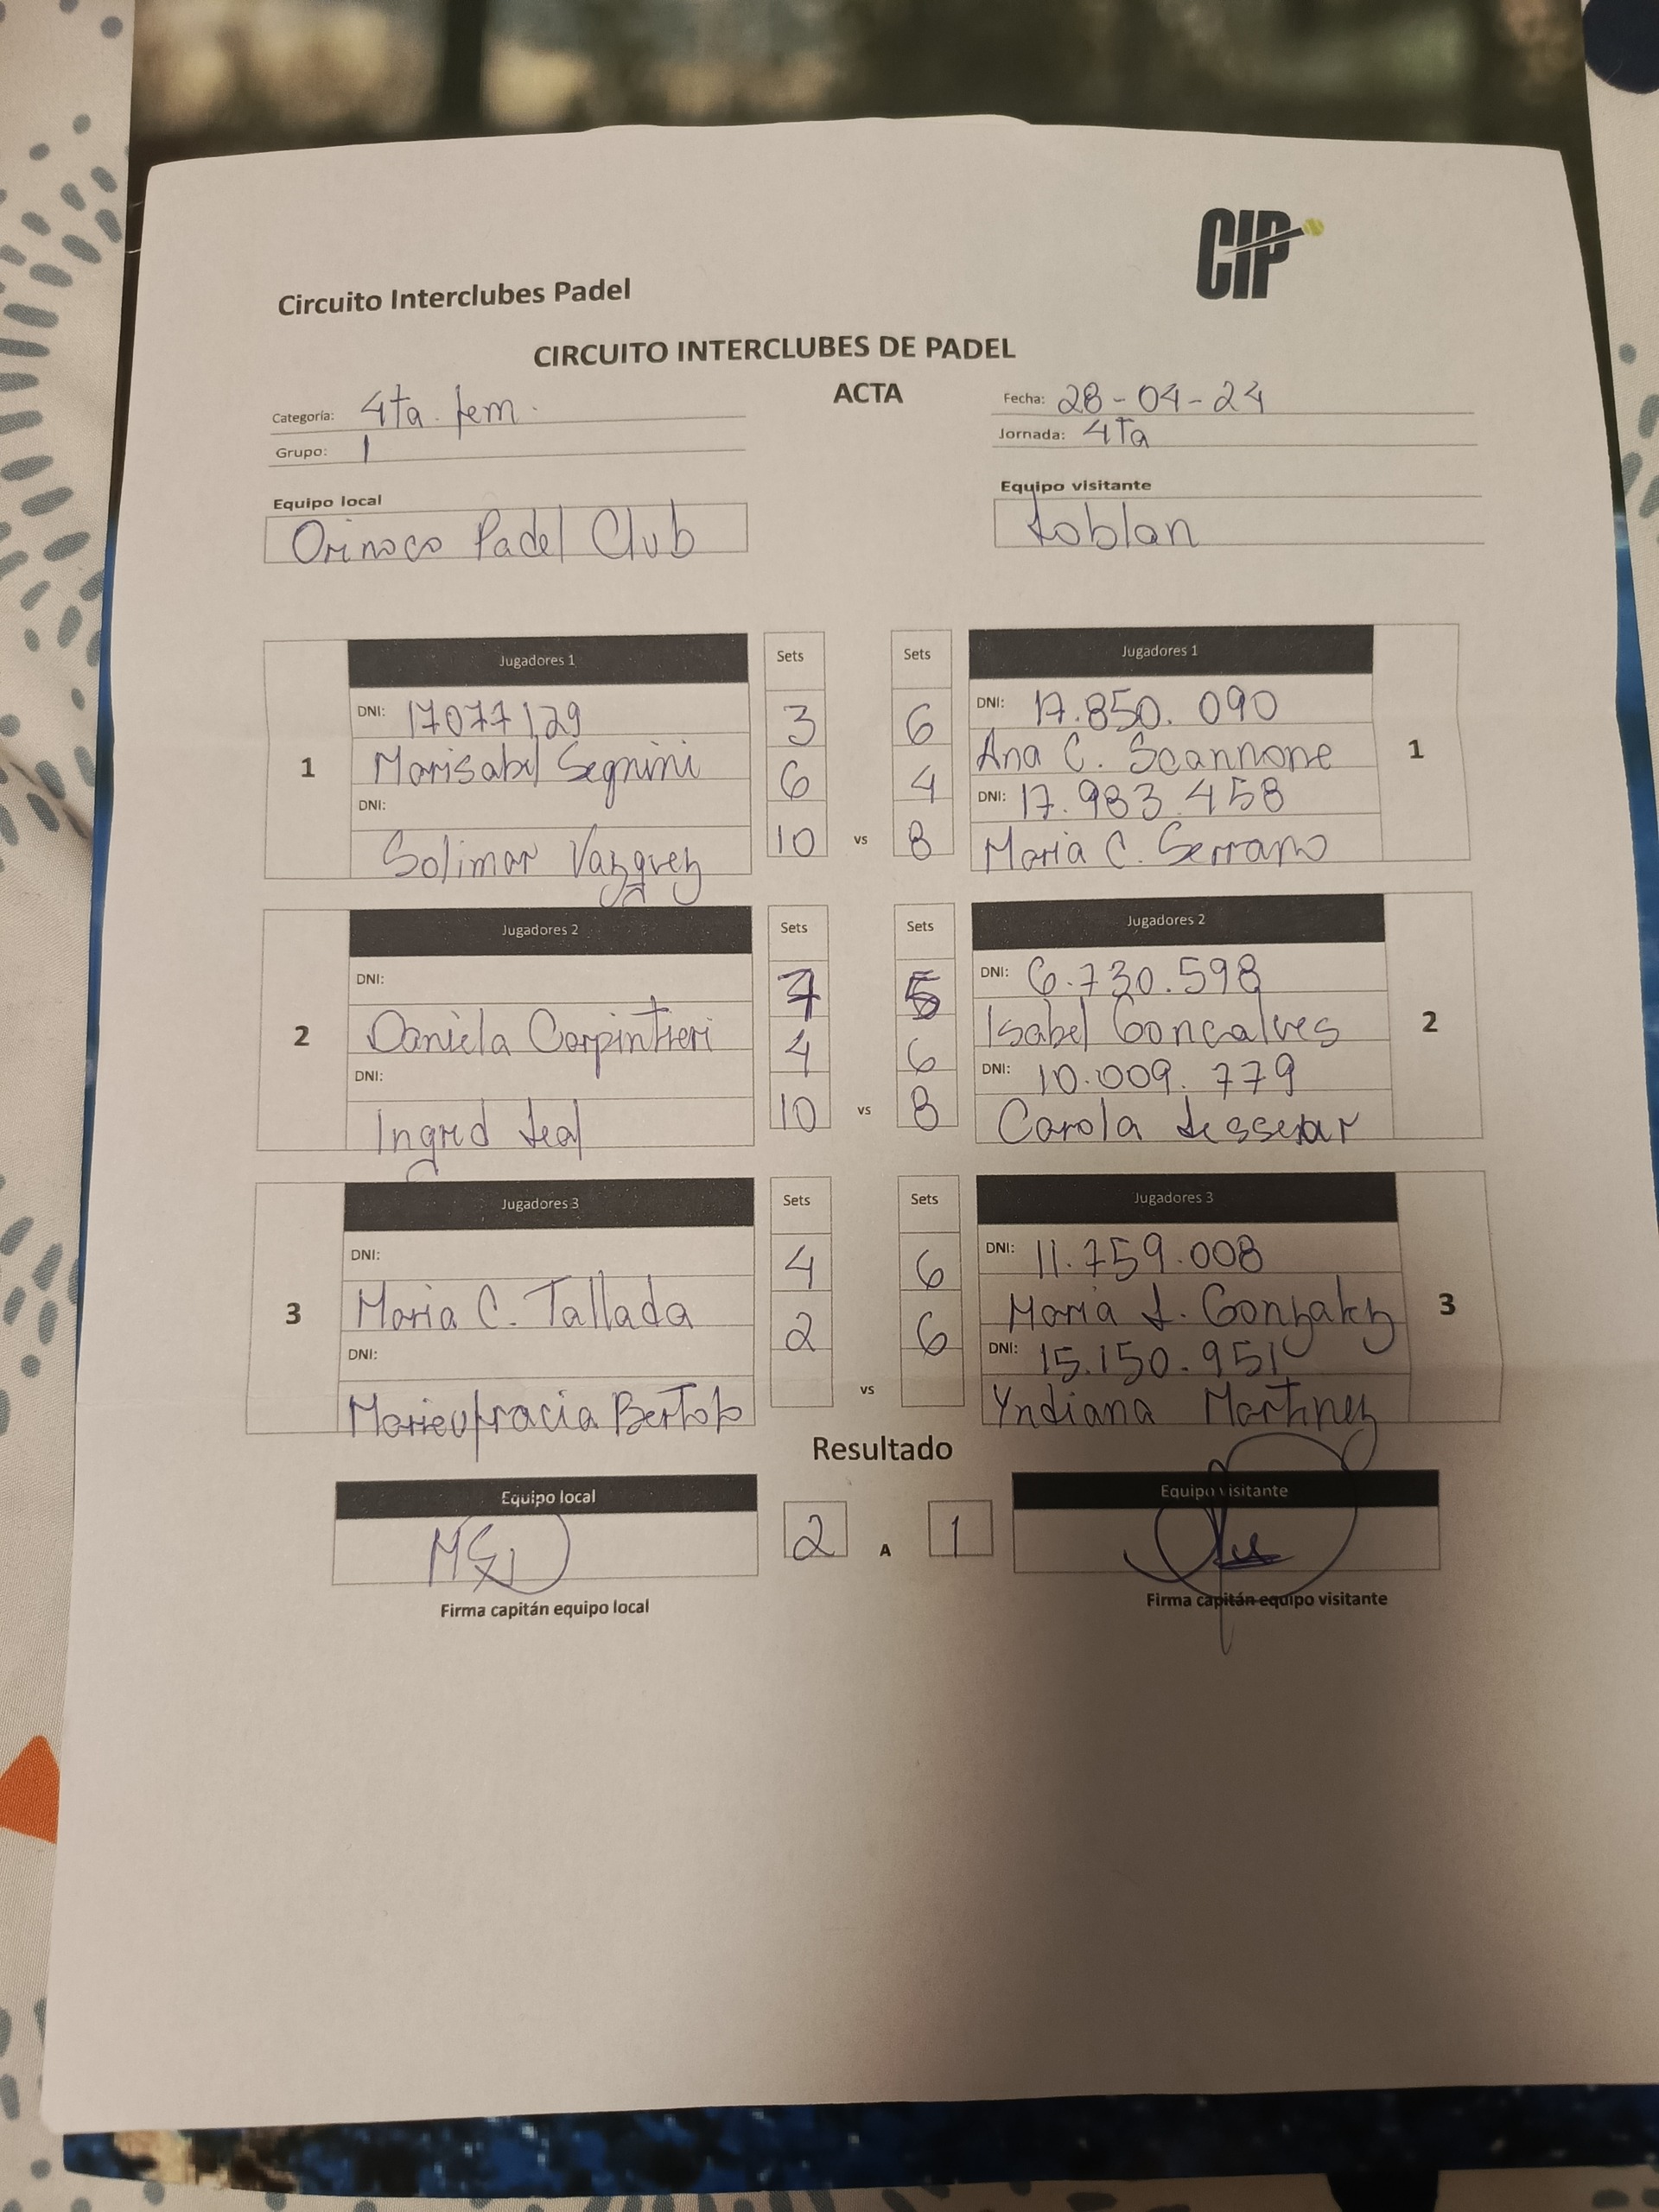 CIP
Circuito Interclubes Padel
CIRCUITO INTERCLUBES DE PADEL
ACTA
Categoría: 4ta. fem.
Fecha: 28-04-24
Grupo: 1
Jornada: 4Ta
Equipo local
Equipo visitante
Orinoco Padel Club
Loblan
Jugadores 1 Sets Sets Jugadores 1
DNI: 17077129 3 6 DNI: 17.850.090
1 Marisabel Segnini 6 4 Ana C. Scannone 1
DNI: DNI: 17.983.458
Solimar Vazquez 10 vs 8 Maria C. Serrano
Jugadores 2 Sets Sets Jugadores 2
DNI: 7 5 DNI: 6.730.598
2 Daniela Carpintieri 4 6 Isabel Goncalves 2
DNI: DNI: 10.009.779
Ingrid Leal 10 vs 8 Carola
Jugadores 3 Sets Sets Jugadores 3
DNI: 4 6 DNI: 11.759.008
3 Maria C. Tallada 2 6 Maria L. Gonzalez 3
DNI: DNI: 15.150.951
vs Yndiana Martinez
Resultado
Equipo local 2 A 1 Equipo visitante
Firma capitán equipo local
Firma capitán equipo visitante